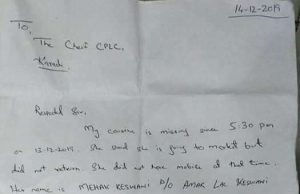 14-12-2019
To,
The Chief CPLC,
Karachi.
Respected Sir,
My cousin is missing since 5:30 pm
on 13-12-2019. She said she is going to market but
did not return. She did not have mobile at that time.
Her name is MEHAK KESWANI D/O AMAR LAL KESWANI